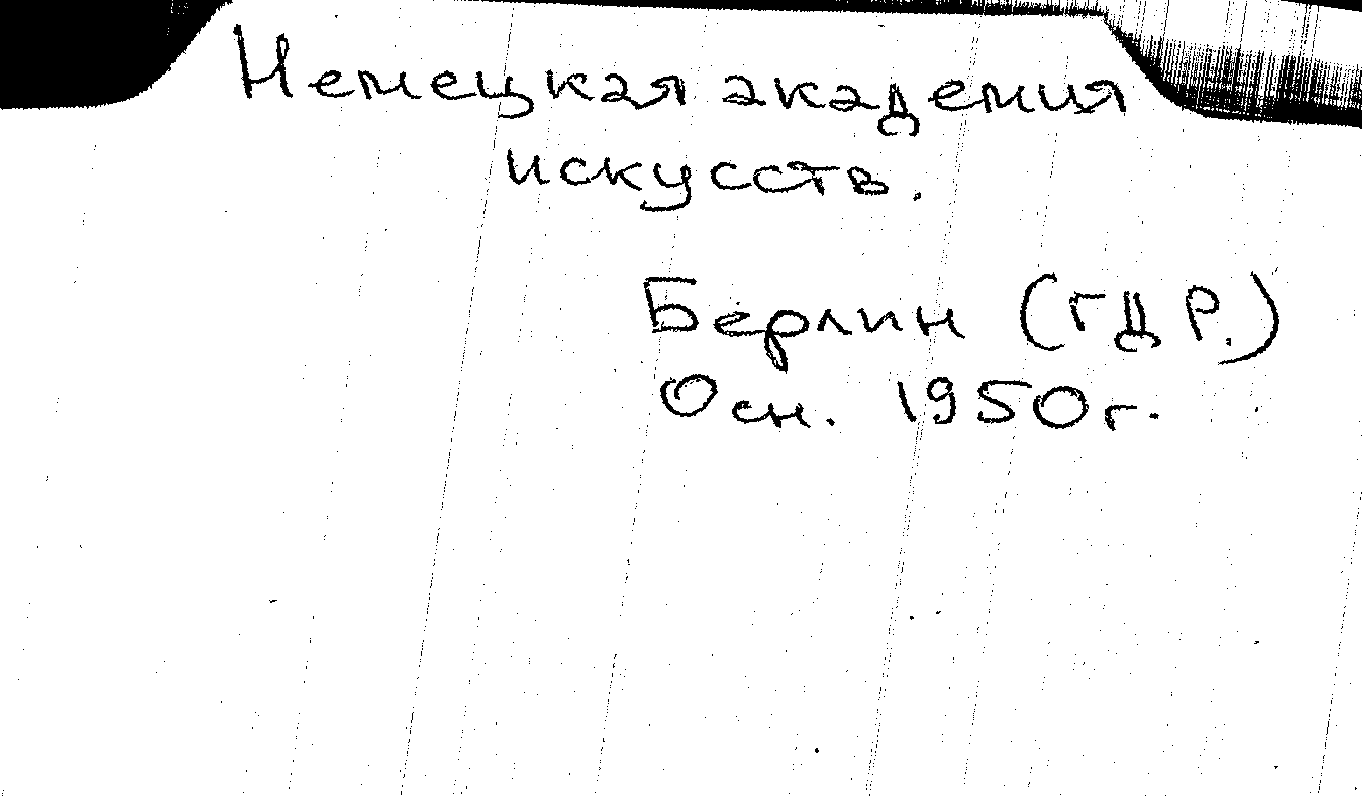 Немецкая академия
искусств.
Берлин (ГДР.)
Осн. 1950г.